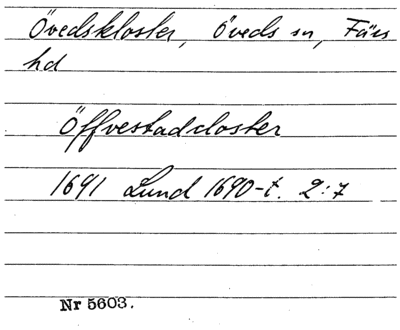 Övedskloster, Öveds sn, Färs
hd
Öffvestadcloster
1691 Lund 1690-t. 2:7
Nr 5603.